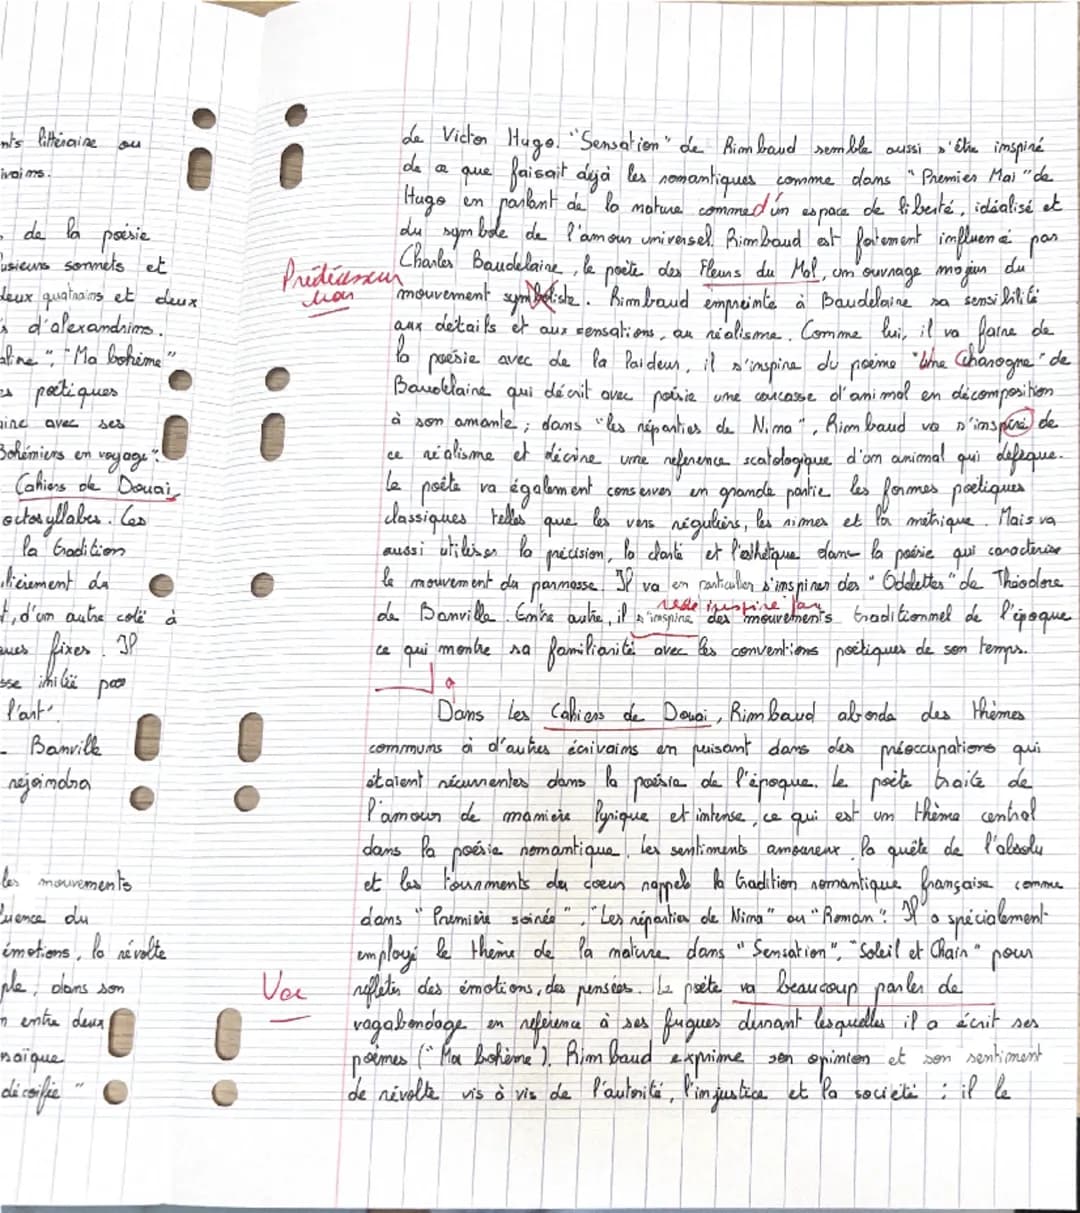 nts littéraire ou
ivains.
de la poésie
usieurs sonnets et
deux quatrains et deux
d'alexandrins.
aline", "Ma bohème"
es poétiques
aire avec ses
Bohémiens en voyage".
Cahiers de Douai
octosyllabes. Ces
la tradition
lièrement du
t, d'un autre coté à
ques fixes. Il
sse initiée par
l'art".
Banville
rejoindra
les mouvements
luence du
émotions, la révolte
ple, dans son
n entre deux
saïque
décoifée"
de Victor Hugo. "Sensation" de Rimbaud semble aussi s'être inspiré
de ce que faisait déjà les romantiques comme dans "Premier Mai" de
Hugo en parlant de la nature comme d'un espace de liberté, idéalisé et
du symbole de l'amour universel. Rimbaud est fortement influencé par
Charles Baudelaire, le poète des Fleurs du Mal, un ouvrage majeur du
Prédécesseur
mouvement symboliste. Rimbaud empreinte à Baudelaire sa sensibilité
aux détails et aux sensations, au réalisme. Comme lui, il va faire de
la poésie avec de la laideur, il s'inspire du poème "Une Charogne" de
Baudelaire qui décrit avec poésie une carcasse d'animal en décomposition
à son amante ; dans "les réparties de Nina", Rimbaud va s'inspiré de
ce réalisme et décrire une reference scatologique d'un animal qui défeque.
Le poète va également conserver en grande partie les formes poétiques
classiques telles que les vers réguliers, les rimes et la métrique. Mais va
aussi utiliser la précision, la clarté et l'esthétique dans la poésie qui caractérise
le mouvement du parnasse. Il va en particulier s'inspirer des "Odelettes" de Théodore
de Banville. Entre autre, il s'inspire des mouvements traditionnel de l'époque
inspire par
ce qui montre sa familiarité avec les conventions poétiques de son temps.
Dans les Cahiers de Douai, Rimbaud aborde des thèmes
communs à d'autres écrivains en puisant dans des préoccupations qui
étaient récurrentes dans la poésie de l'époque. Le poète traite de
l'amour de manière lyrique et intense, ce qui est un thème central
dans la poésie romantique. Les sentiments amoureux, la quête de l'absolu
et les tourments du coeur rappele la tradition romantique française comme
dans "Première soirée", "Les réparties de Nina" ou "Roman". Il a spécialement
employé le thème de la nature dans "Sensation", "Soleil et Chair" pour
refléter des émotions, des pensées. Le poète va beaucoup parler de
vagabondage en reférence à ses fugues durant lesquelles il a écrit ses
poèmes ("Ma bohème"). Rimbaud exprime son opinion et son sentiment
de révolte vis à vis de l'autorité, l'injustice et la société : il le